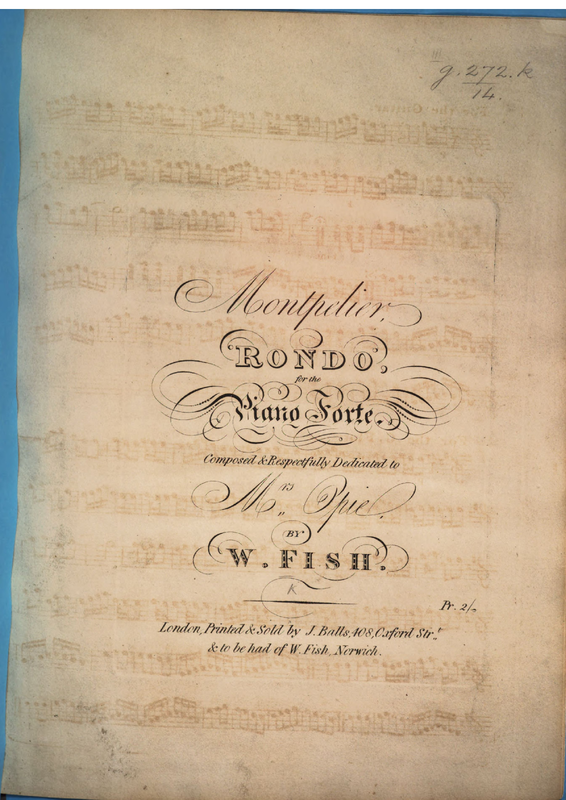 g.272.k
14.
Montpelier,
RONDO,
for the
Piano Forte.
Composed & Respectfully Dedicated to
Mrs. Opie,
BY
W. FISH.
K
Pr. 2/-
London, Printed & Sold by J. Balls, 408, Oxford Strt.
& to be had of W. Fish, Norwich.